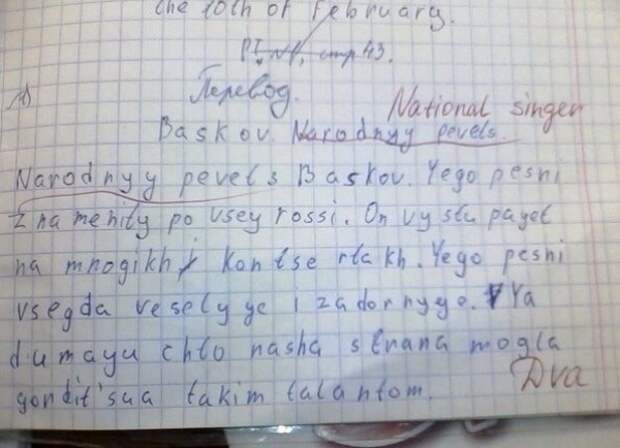 the 10th of February.
P1, N1, стр 43.
1)
Перевод.
National singer
Baskov. Narodnyy pevels.
Narodnyy pevels Baskov. Yego pesni
znamenity po vsey rossi. On vystupayet
na mnogikh kontsertakh. Yego pesni
vsegda veselyye i zadornyye. Ya
dumayu chto nasha strana mogla
gordit'sua takim talantom.
Dva